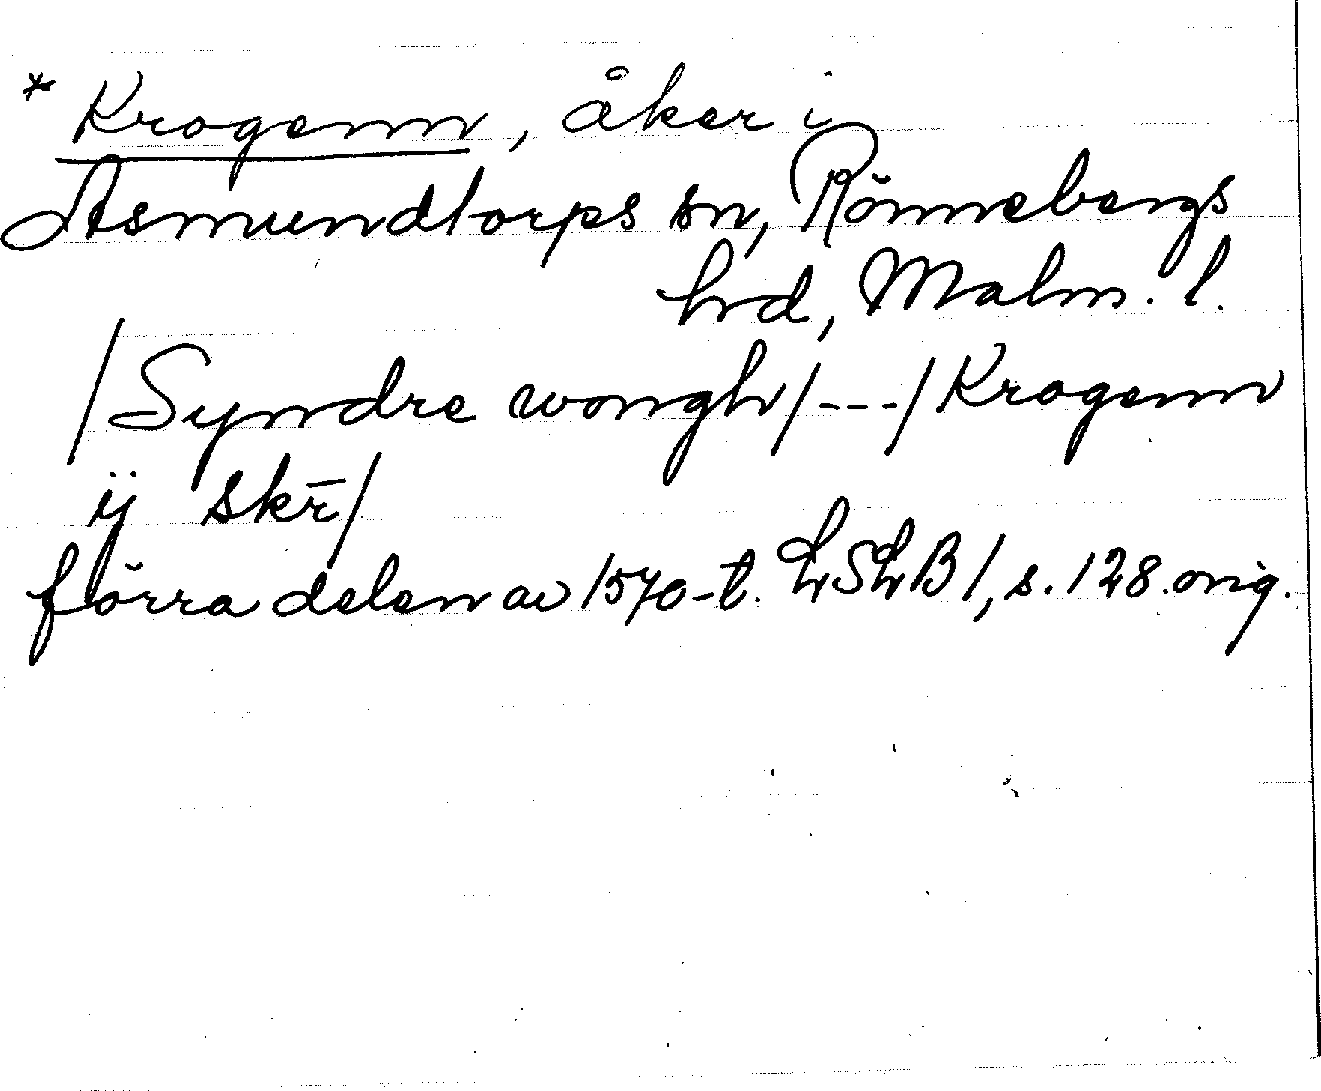 * Krogenn, åker i
Asmundtorps sn, Rönnebergs
hrd, Malm. l.
/Syndre wongh/---/Krogenn
ÿ skr̄/
förra delen av 1570-t. LSLB 1, s. 128. orig.